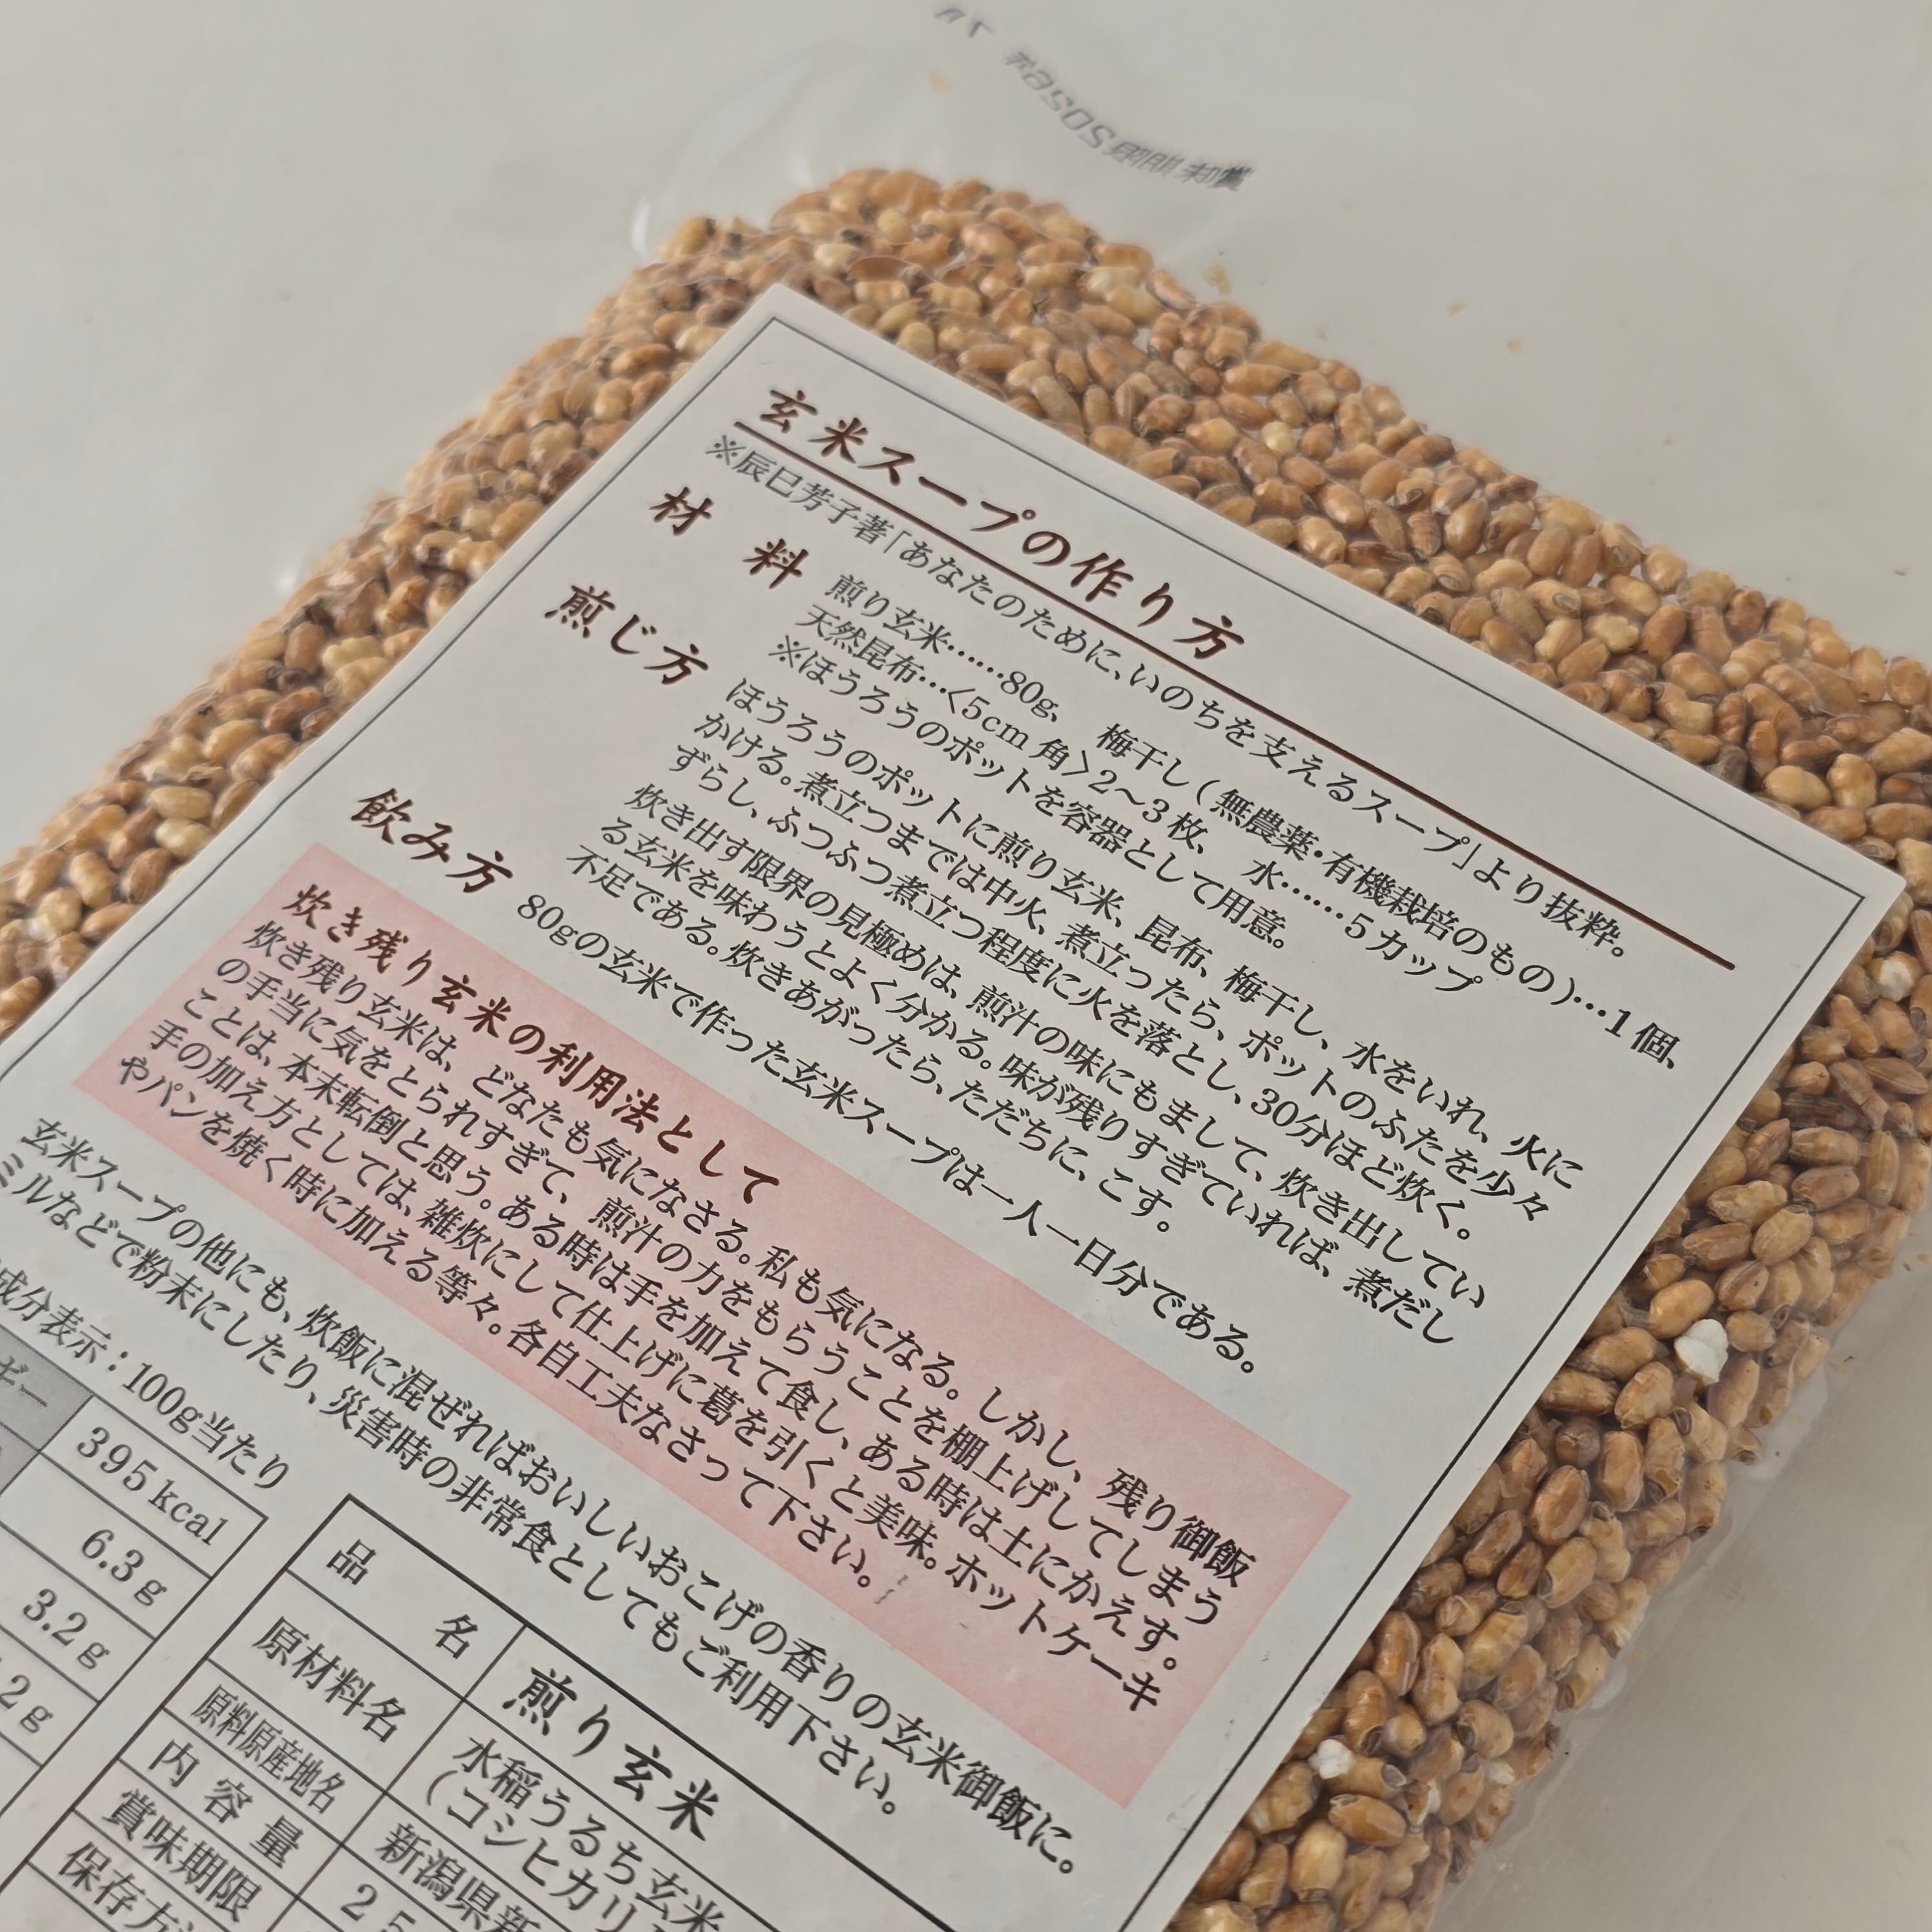 賞味期限2026年
玄米スープの作り方
※辰巳芳子著「あなたのために、いのちを支えるスープ」より抜粋。
材 料 煎り玄米……80g、 梅干し(無農薬・有機栽培のもの)…1個、
天然昆布…〈5cm角〉2〜3枚、 水……5カップ
※ほうろうのポットを容器として用意。
煎じ方 ほうろうのポットに煎り玄米、昆布、梅干し、水をいれ、火に
かける。煮立つまでは中火、煮立ったら、ポットのふたを少々
ずらし、ふつふつ煮立つ程度に火を落とし、30分ほど炊く。
炊き出す限界の見極めは、煎汁の味にもまして、炊き出してい
る玄米を味わうとよく分かる。味が残りすぎていれば、煮だし
不足である。炊きあがったら、ただちに、こす。
飲み方 80gの玄米で作った玄米スープは一人一日分である。
炊き残り玄米の利用法として
炊き残り玄米は、どなたも気になさる。私も気になる。しかし、残り御飯
の手当に気をとられすぎて、煎汁の力をもらうことを棚上げしてしまう
ことは、本末転倒と思う。ある時は手を加えて食し、ある時は土にかえす。
手の加え方としては、雑炊にして仕上げに葛を引くと美味。ホットケーキ
やパンを焼く時に加える等々。各自工夫なさって下さい。
玄米スープの他にも、炊飯に混ぜればおいしいおこげの香りの玄米御飯に。
ミルなどで粉末にしたり、災害時の非常食としてもご利用下さい。
成分表示:100g当たり
ギー 395kcal
6.3g
3.2g
2g
品 名 煎り玄米
原材料名 水稲うるち玄米
(コシヒカリ
原料原産地名 新潟県新
内容量 25
賞味期限
保存方